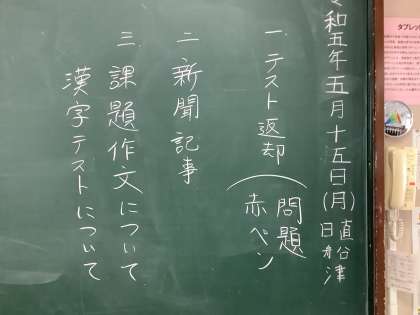 令和五年五月十五日(月)
直谷津
日舟
一 テスト返却(問題
赤ペン
二 新聞記事
三 課題作文について
漢字テストについて
タブレッ